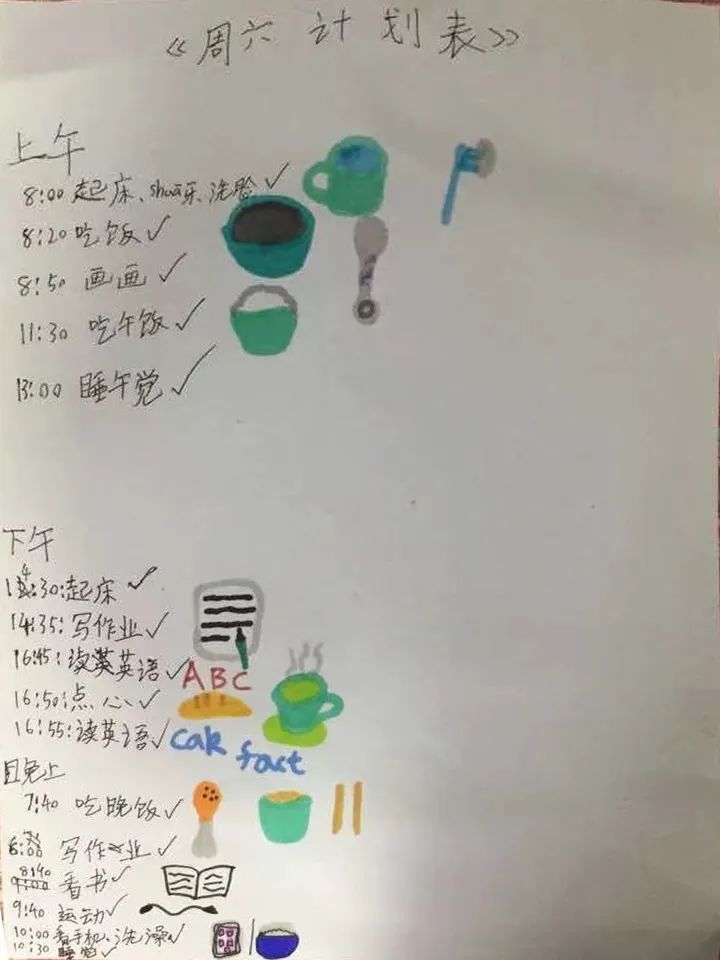 《周六计划表》
上午
8:00 起床、shua牙、洗脸✓
8:20 吃饭✓
8:50 画画✓
11:30 吃午饭✓
13:00 睡午觉✓
下午
14:30:起床✓
14:35:写作业✓
16:45:读英英语✓
ABC
16:50:点心✓
16:55:读英语✓
cak fact
晚上
7:40 吃晚饭✓
写作业✓
8:40 看书✓
9:40 运动✓
10:00 看手机、洗澡✓
10:30 睡觉✓